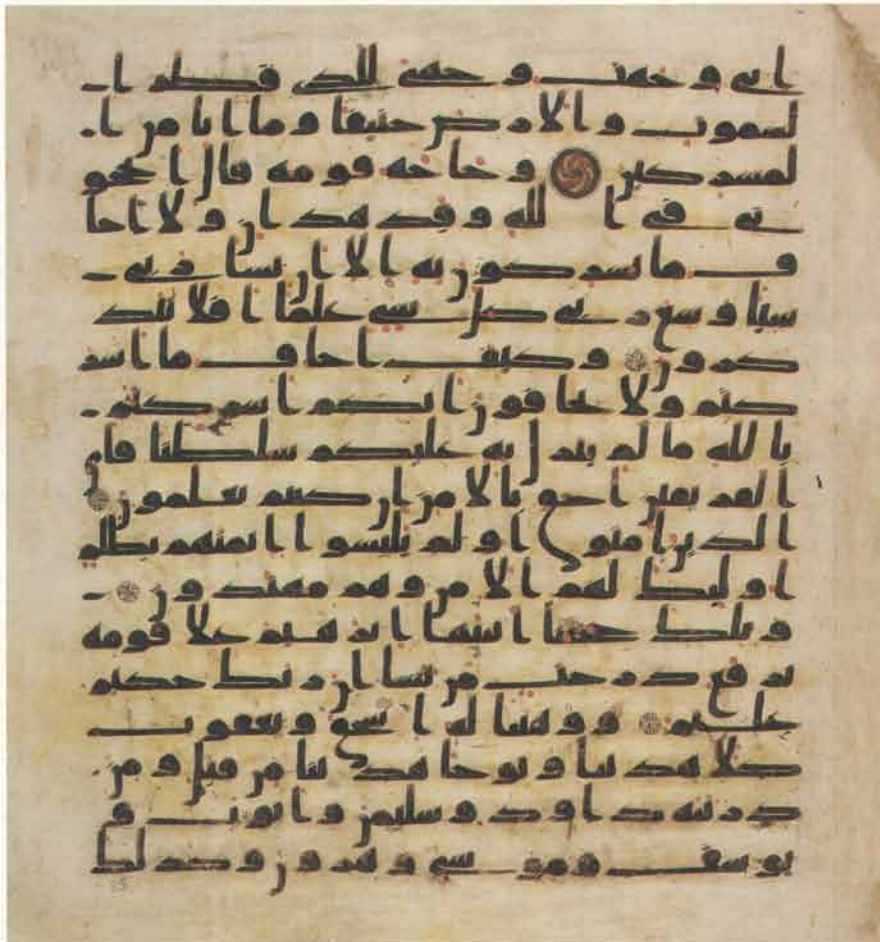 انى وجهت وجهى للذى فطر ا
لسموت والارض حنيفا وما انا من ا
لمشركين وحاجه قومه قال اتحجو
نى فى الله وقد هدان ولا اخا
ف ما تشركون به الا ان يشا ربى
شيا وسع ربى كل شى علما افلا تتذ
كرون وكيف اخاف ما اشر
كتم ولا تخافون انكم اشركتم
بالله ما لم ينزل به عليكم سلطنا فاى
الفريقين احق بالامن ان كنتم تعلمون
الذين امنوا ولم يلبسوا ايمنهم بظلم
اوليك لهم الامن وهم مهتدون
وتلك حجتنا اتينها ابرهيم على قومه
نرفع درجت من نشا ان ربك حكيم
عليم ووهبنا له اسحق ويعقوب
كلا هدينا ونوحا هدينا من قبل ومن
ذريته داود وسليمن وايوب و
يوسف وموسى وهرون وكذلك